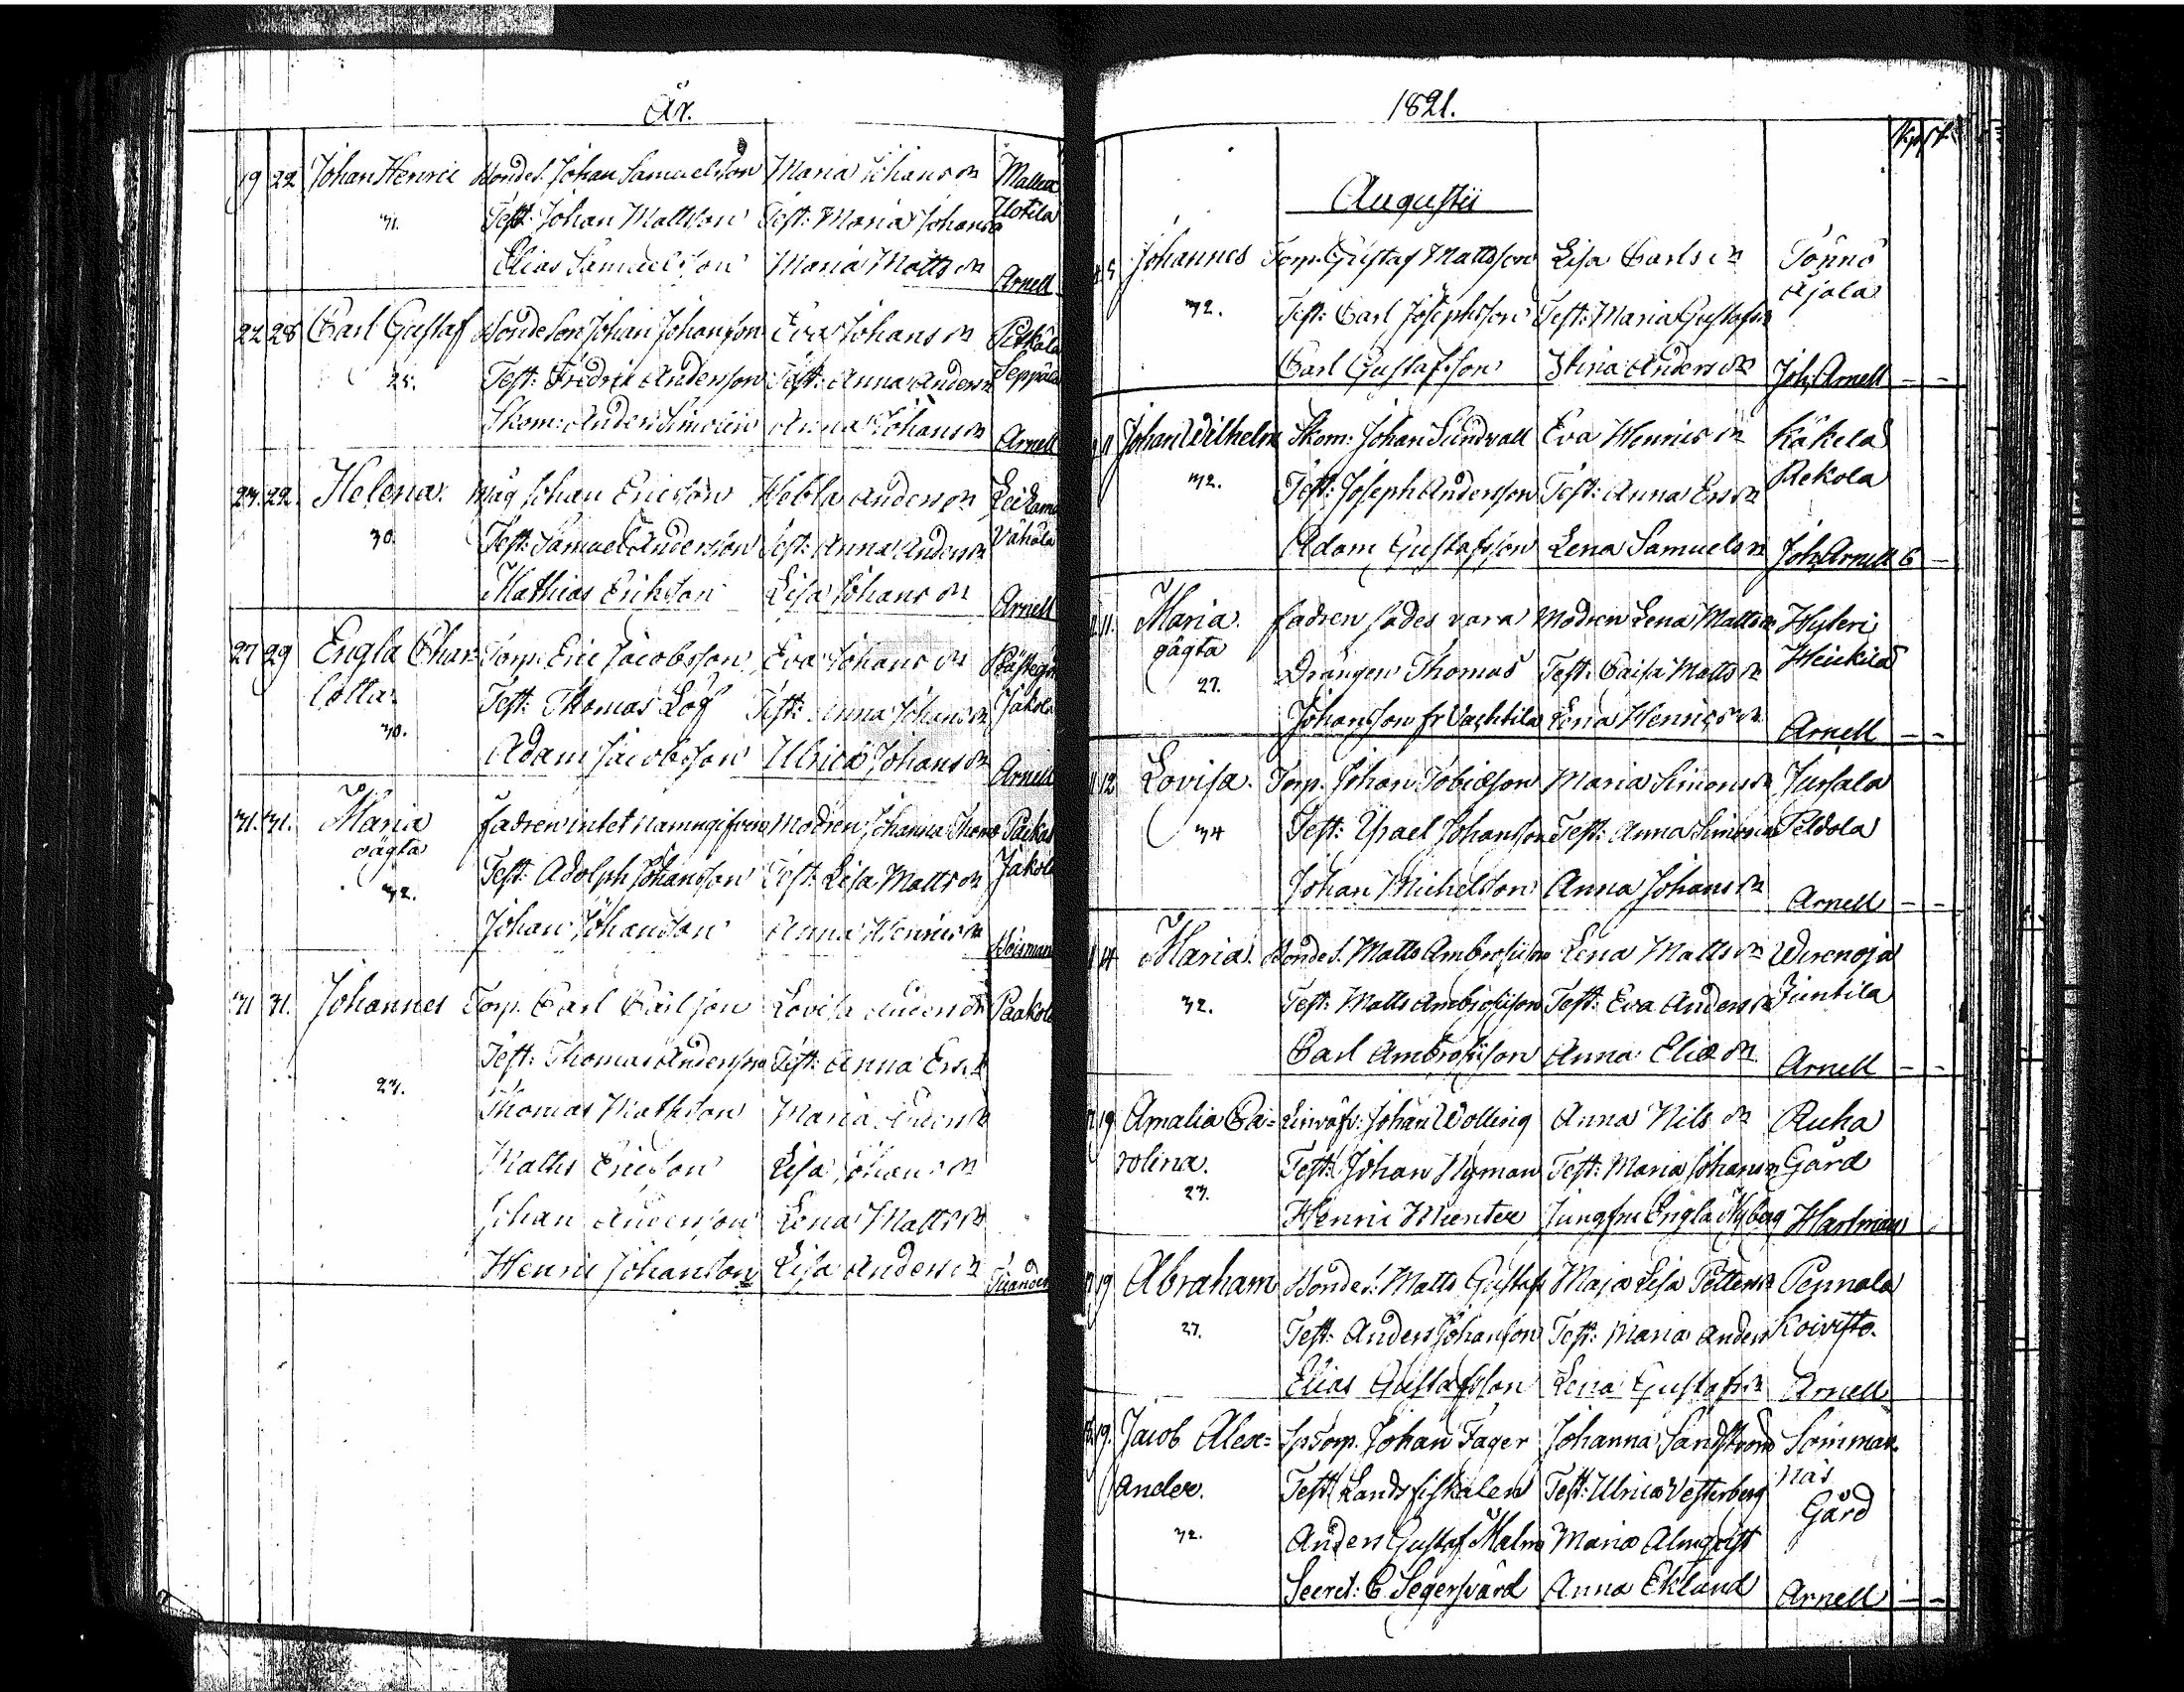 År.
19 22 Johan Henric Bondes. Johan Samuelsson Maria Johans dr
Test: Johan Mattsson Test: Maria Johans Uotila
Elias Samuelsson Maria Matts dr Arnell
22 28 Carl Gustaf Bondeson Johan Johansson Eva Johans dr
25. Test: Fredric Andersson Test: Anna Anders Seppälä
Skom: Anders Anna Johans dr Arnell
23. 22. Helena. Måg Johan Ericsson Hebla Anders dr
30. Test: Samuel Andersson Test: Anna Anders dr Vähälä
Mathias Erikson Lisa Johans dr Arnell
27 29 Engla Char= Torp. Eric Jacobsson Eva Johans dr
lotta. Test: Thomas Löf Test: Anna Johans dr Jakola
30. Adam Jacobsson Ulrica Johans dr Arnell
31. 31. Maria fadren intet namngifven Modren Johanna Thoms
oägta Test: Adolph Johansson Test: Lisa Matts dr Jakola
32. Johan Johansson Anna Henrics dr
31 31. Johannes Torp. Carl Carlsson Lovisa Anders dr Paakola
Test: Thomas Andersson Test: Anna Ers.d
23. Thomas Mathson Maria
Matts Ericsson Lisa Johans dr
Johan Andersson Lena Matts dr
Henric Johansson Lisa Anders dr
1821.
Augustii
5 Johannes Torp. Gustaf Mattsson Lisa Carls dr Tönnö
32. Test: Carl Josephsson Test: Maria Gustafs dr Ajala
Carl Gustafsson Stina Anders dr Joh. Arnell - -
11 Johan Wilhelm Skom: Johan Sundvall Eva Henrics dr Käkelä
32. Test: Joseph Andersson Test: Anna Ers dr Rekola
Adam Gustafsson Lena Samuels dr Joh. Arnell 6 -
11. Maria. fadren sades vara Modren Lena Matts dr
oägta Drängen Thomas Test: Caisa Matts dr Heickilä
27. Johansson fr Vachtila Lena Henrics dr Arnell - -
12 Lovisa. Torp. Johan Tobiæson Maria Simons dr
34 Test: Ysrael Johansson Test: Anna Simons Peldola
Johan Michelson Anna Johans dr Arnell - -
14 Maria. Bondes. Matts Ambrosiison Lena Matts dr Wirenoja
32. Test: Matts Ambrosiison Test: Eva Anders dr Juntila
Carl Ambrosiison Anna Eliæ dr Arnell - -
19 Amalia Ca= Johan Wolling Anna Nils dr Ruha
rolina. Test: Johan Nyman Test: Maria Johans dr Gård
23. Henric Munter Jungfru Engla Nyberg Hartman
19 Abraham Bondes. Matts Gustafs Maja Lisa Petters dr Pennala
27. Test: Anders Johansson Test: Maria Anders Koivisto.
Elias Gustafsson Lena Gustafs dr Arnell
19. Jacob Alex= Johan Fager Johanna Sandström Sommar
ander. Test: Landsfiskalen Test: Ulrica Vesterberg näs
32. Anders Gustaf Malm Maria Almqvist Gård
Secret: C Segersvärd Anna Eklund Arnell - -